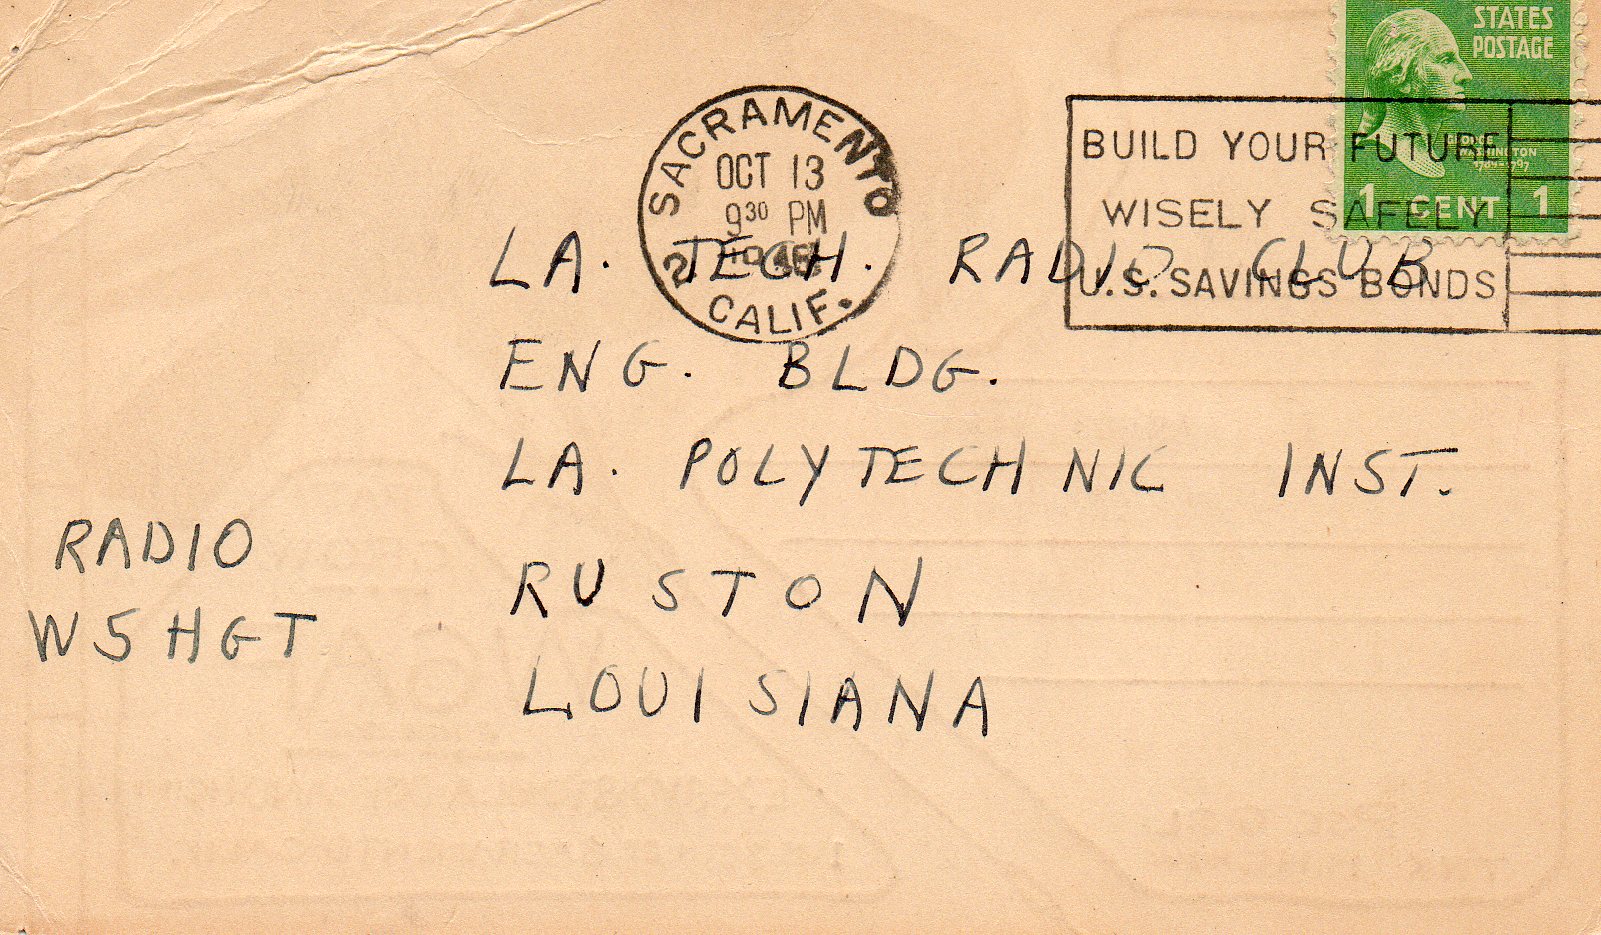 STATES
POSTAGE
GEORGE
WASHINGTON
1789-1797
1 CENT 1
SACRAMENTO
OCT 13
9 30 PM
2
CALIF.
BUILD YOUR FUTURE
WISELY SAFELY
U.S. SAVINGS BONDS
LA. TECH. RADIO CLUB
ENG. BLDG.
LA. POLYTECHNIC INST.
RUSTON
LOUISIANA
RADIO
W5HGT